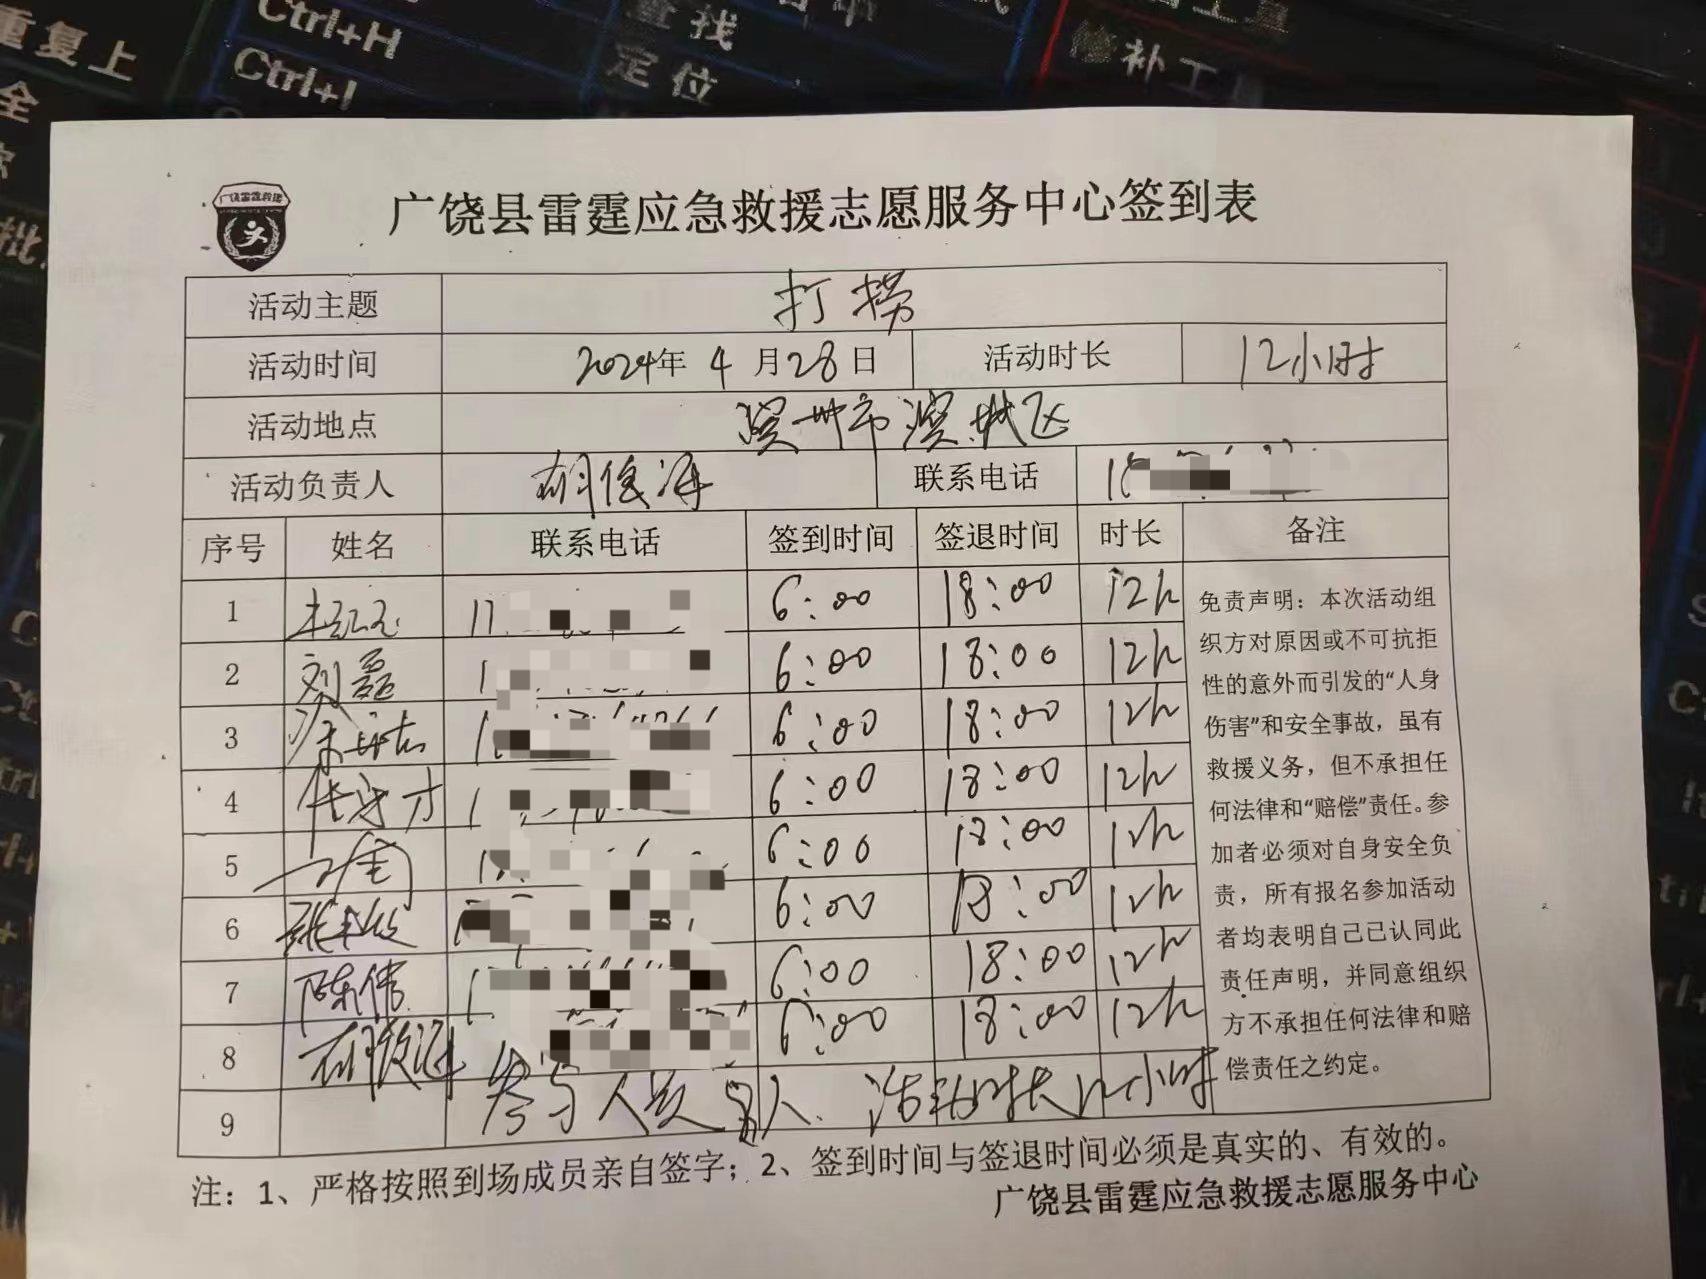 重复上
全
批
Ctrl+H
Ctrl+I
查找
定位
修补工具
广饶雷霆救援
广饶县雷霆应急救援志愿服务中心签到表
活动主题 打捞
活动时间 2024年 4 月 28 日 活动时长 12小时
活动地点 滨州市滨城区
活动负责人 胡俊海 联系电话 1
序号 姓名 联系电话 签到时间 签退时间 时长 备注
1 6:00 18:00 12h
2 刘磊 6:00 18:00 12h
3 6:00 18:00 12h
4 6:00 18:00 12h
5 6:00 18:00 12h
6 6:00 18:00 12h
7 陈伟 6:00 18:00 12h
8 6:00 18:00 12h
9 参与人员 8人、活动时长12小时
免责声明：本次活动组
织方对原因或不可抗拒
性的意外而引发的“人身
伤害”和安全事故，虽有
救援义务，但不承担任
何法律和“赔偿”责任。参
加者必须对自身安全负
责，所有报名参加活动
者均表明自己已认同此
责任声明，并同意组织
方不承担任何法律和赔
偿责任之约定。
注：1、严格按照到场成员亲自签字；2、签到时间与签退时间必须是真实的、有效的。
广饶县雷霆应急救援志愿服务中心